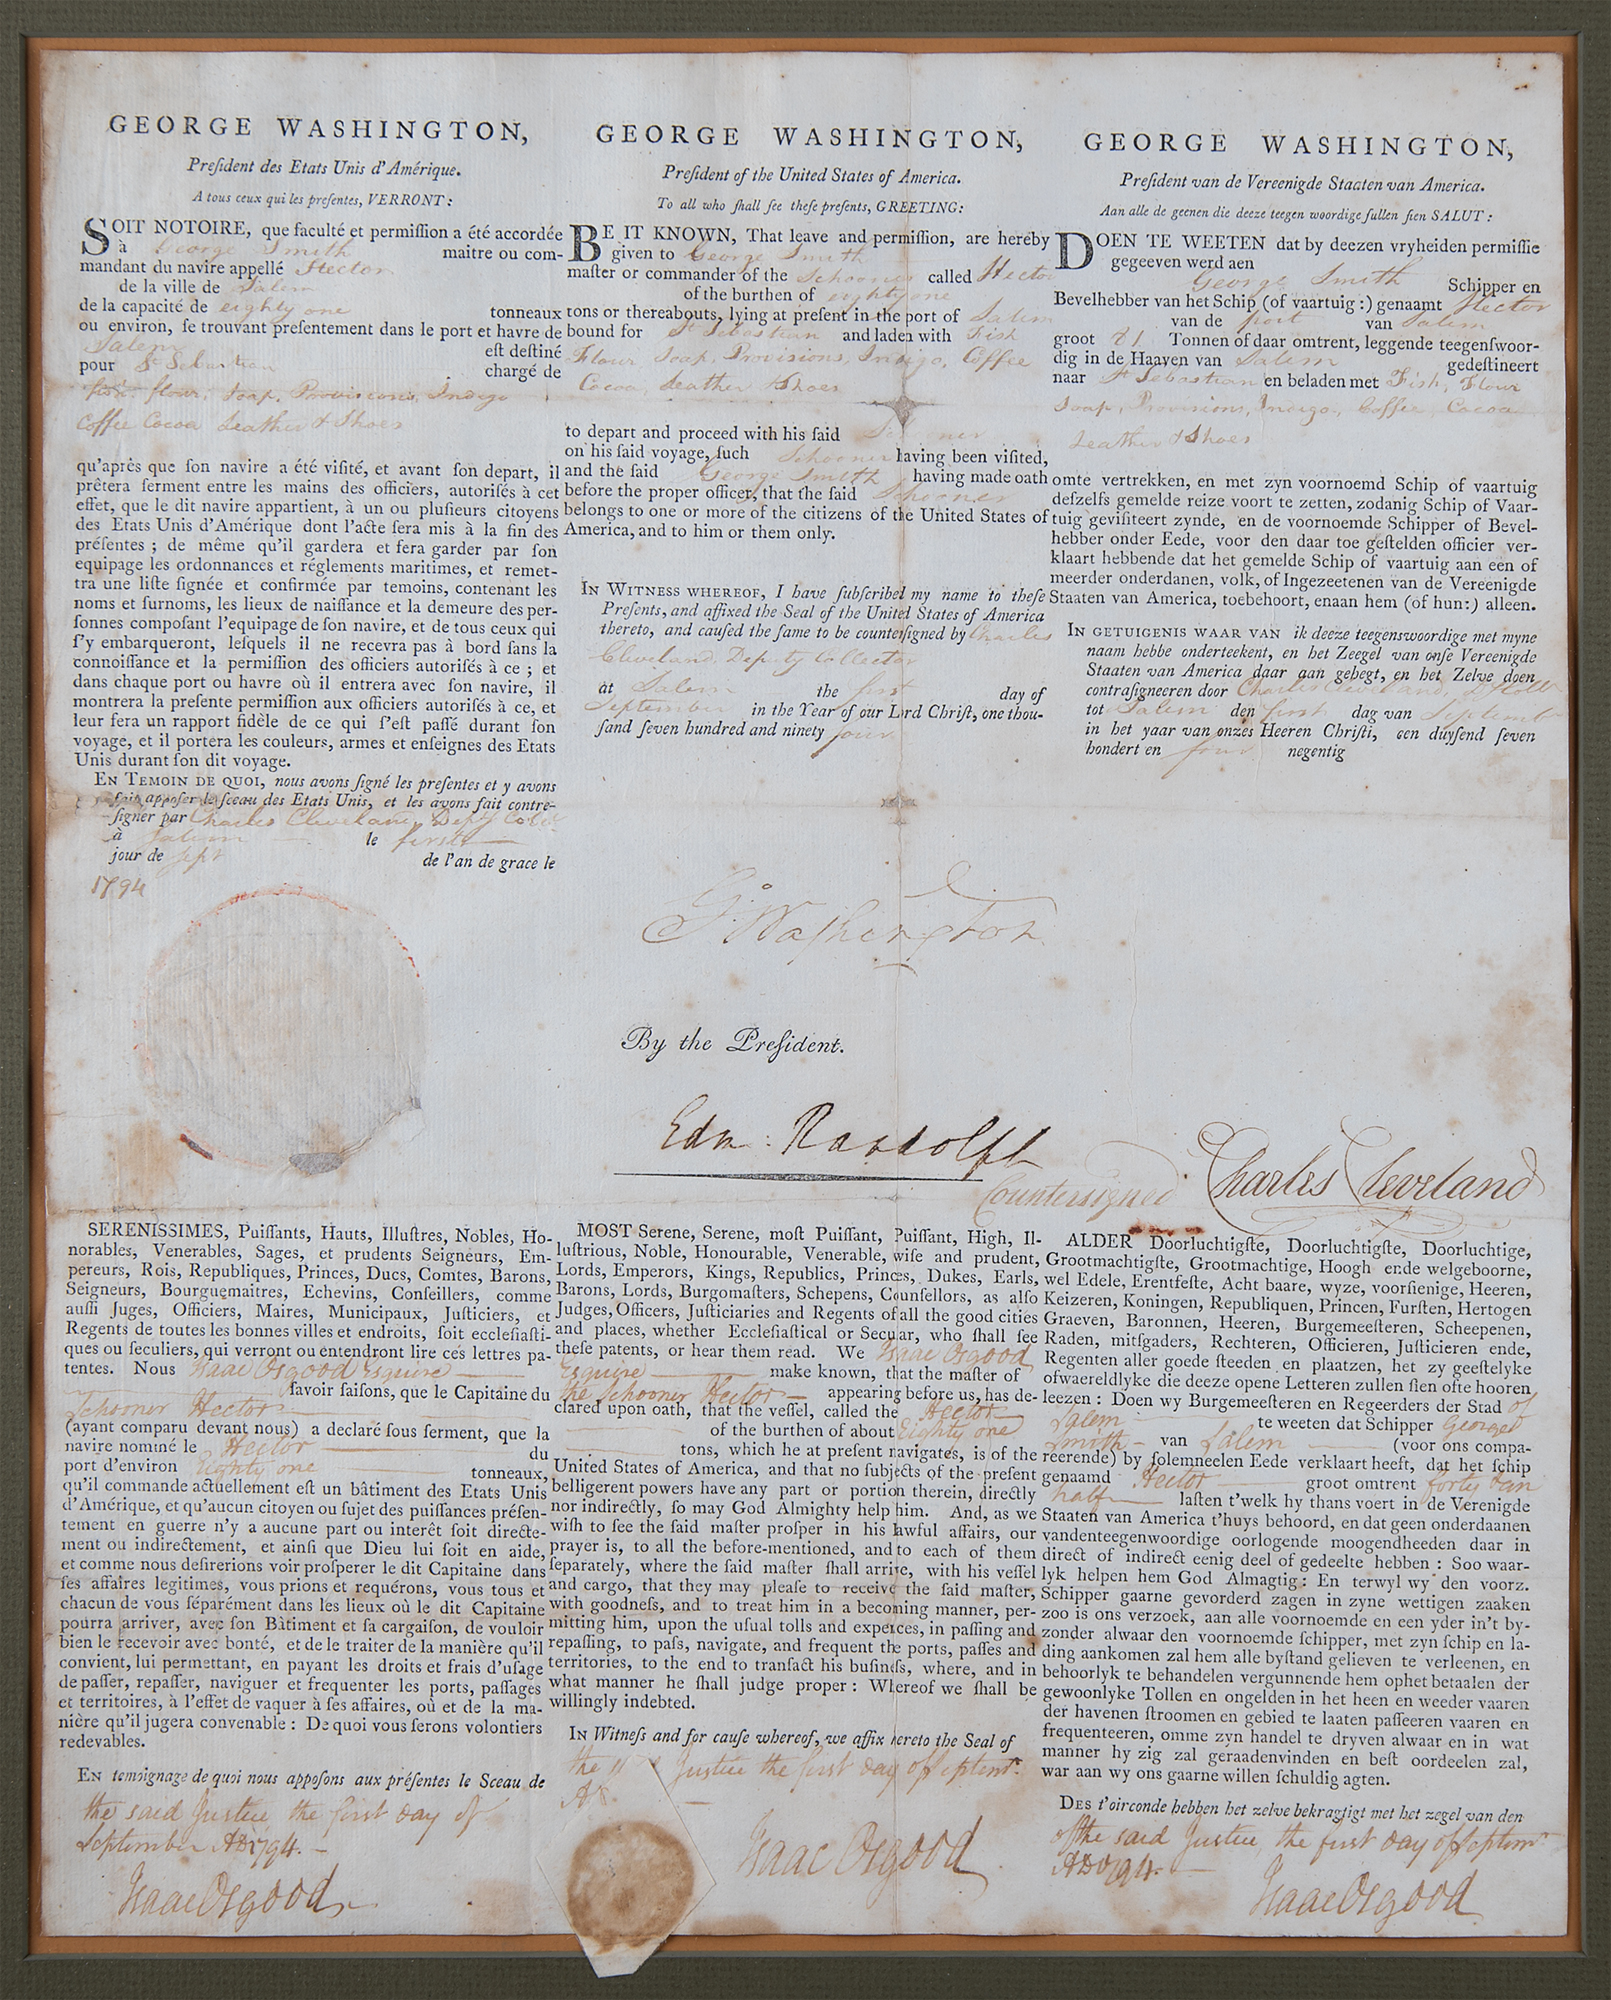 GEORGE WASHINGTON,
Preſident des Etats Unis d'Amérique.
A tous ceux qui les preſentes, VERRONT:
SOIT NOTOIRE, que faculté et permiſſion a été accordée
à George Smith maitre ou com-
mandant du navire appellé Hector
de la ville de Salem
de la capacité de eighty one tonneaux
ou environ, ſe trouvant preſentement dans le port et havre de
Salem eſt deſtiné
pour St Sebastian chargé de
flour, Soap, Provisions, Indigo
Coffee Cocoa Leather & Shoes
qu'après que ſon navire a été viſité, et avant ſon depart, il
prêtera ſerment entre les mains des officiers, autoriſés à cet
effet, que le dit navire appartient, à un ou pluſieurs citoyens
des Etats Unis d'Amérique dont l'acte ſera mis à la fin des
préſentes; de même qu'il gardera et fera garder par ſon
equipage les ordonnances et réglements maritimes, et remet-
tra une liſte ſignée et confirmée par temoins, contenant les
noms et ſurnoms, les lieux de naiſſance et la demeure des per-
ſonnes compoſant l'equipage de ſon navire, et de tous ceux qui
ſ'y embarqueront, leſquels il ne recevra pas à bord ſans la
connoiſſance et la permiſſion des officiers autoriſés à ce; et
dans chaque port ou havre où il entrera avec ſon navire, il
montrera la preſente permiſſion aux officiers autoriſés à ce, et
leur fera un rapport fidèle de ce qui ſ'eſt paſſé durant ſon
voyage, et il portera les couleurs, armes et enſeignes des Etats
Unis durant ſon dit voyage.
EN TEMOIN DE QUOI, nous avons ſigné les preſentes et y avons
fait appoſer le ſceau des Etats Unis, et les avons fait contre-
ſigner par Charles Cleveland, Depty Collr
à Salem le first
jour de Sept de l'an de grace le
1794
GEORGE WASHINGTON,
Preſident of the United States of America.
To all who ſhall ſee theſe preſents, GREETING:
BE IT KNOWN, That leave and permiſſion, are hereby
given to George Smith
maſter or commander of the Schooner called Hector
of the burthen of eighty one
tons or thereabouts, lying at preſent in the port of Salem
bound for St Sebastian and laden with Fish
Flour Soap, Provisions, Indigo, Coffee
Cocoa, Leather & Shoes
to depart and proceed with his ſaid Schooner
on his ſaid voyage, ſuch Schooner having been viſited,
and the ſaid George Smith having made oath
before the proper officer, that the ſaid Schooner
belongs to one or more of the citizens of the United States of
America, and to him or them only.
IN WITNESS WHEREOF, I have ſubſcribed my name to theſe
Preſents, and affixed the Seal of the United States of America
thereto, and cauſed the ſame to be counterſigned by Charles
Cleveland, Deputy Collector
at Salem the first day of
September in the Year of our Lord Chriſt, one thou-
ſand ſeven hundred and ninety four
GEORGE WASHINGTON,
Preſident van de Vereenigde Staaten van America.
Aan alle de geenen die deeze teegen woordige ſullen ſien SALUT:
DOEN TE WEETEN dat by deezen vryheiden permiſſie
gegeeven werd aen
George Smith Schipper en
Bevelhebber van het Schip (of vaartuig:) genaamt Hector
van de port van Salem
groot 81 Tonnen of daar omtrent, leggende teegenſwoor-
dig in de Haaven van Salem gedeſtineert
naar St Sebastian en beladen met Fish, Flour
Soap, Provisions, Indigo, Coffee, Cocoa
Leather & Shoes
omte vertrekken, en met zyn voornoemd Schip of vaartuig
deſzelfs gemelde reize voort te zetten, zodanig Schip of Vaar-
tuig geviſiteert zynde, en de voornoemde Schipper of Bevel-
hebber onder Eede, voor den daar toe geſtelden officier ver-
klaart hebbende dat het gemelde Schip of vaartuig aan een of
meerder onderdanen, volk, of Ingezeetenen van de Vereenigde
Staaten van America, toebehoort, enaan hem (of hun:) alleen.
IN GETUIGENIS WAAR VAN ik deeze teegenswoordige met myne
naam hebbe onderteekent, en het Zeegel van onſe Vereenigde
Staaten van America daar aan gehegt, en het Zelve doen
contraſigneeren door Charles Cleveland, D Collr
tot Salem den first dag van September
in het yaar van onzes Heeren Chriſti, een duyſend ſeven
hondert en four negentig
Go Washington
By the Preſident.
Edm: Randolph
Countersigned Charles Cleveland
SERENISSIMES, Puiſſants, Hauts, Illuſtres, Nobles, Ho-
norables, Venerables, Sages, et prudents Seigneurs, Em-
pereurs, Rois, Republiques, Princes, Ducs, Comtes, Barons,
Seigneurs, Bourguemaitres, Echevins, Conſeillers, comme
auſſi Juges, Officiers, Maires, Municipaux, Juſticiers, et
Regents de toutes les bonnes villes et endroits, ſoit eccleſiaſti-
ques ou ſeculiers, qui verront ou entendront lire ces lettres pa-
tentes. Nous Isaac Osgood Esquire
ſavoir faiſons, que le Capitaine du
Schooner Hector
(ayant comparu devant nous) a declaré ſous ſerment, que la
navire nominé le Hector du
port d'environ Eighty one tonneaux,
qu'il commande actuellement eſt un bâtiment des Etats Unis
d'Amérique, et qu'aucun citoyen ou ſujet des puiſſances préſen-
tement en guerre n'y a aucune part ou interêt ſoit directe-
ment ou indirectement, et ainſi que Dieu lui ſoit en aide,
et comme nous deſirerions voir proſperer le dit Capitaine dans
ſes affaires legitimes, vous prions et requérons, vous tous et
chacun de vous ſéparément dans les lieux où le dit Capitaine
pourra arriver, avec ſon Bâtiment et ſa cargaiſon, de vouloir
bien le recevoir avec bonté, et de le traiter de la manière qu'il
convient, lui permettant, en payant les droits et frais d'uſage
de paſſer, repaſſer, naviguer et frequenter les ports, paſſages
et territoires, à l'effet de vaquer à ſes affaires, où et de la ma-
nière qu'il jugera convenable: De quoi vous ſerons volontiers
redevables.
EN temoignage de quoi nous appoſons aux préſentes le Sceau de
the said Justice the first day of
September AD 1794.
Isaac Osgood
MOST Serene, Serene, moſt Puiſſant, Puiſſant, High, Il-
luſtrious, Noble, Honourable, Venerable, wiſe and prudent,
Lords, Emperors, Kings, Republics, Princes, Dukes, Earls,
Barons, Lords, Burgomaſters, Schepens, Counſellors, as alſo
Judges, Officers, Juſticiaries and Regents of all the good cities
and places, whether Eccleſiaſtical or Secular, who ſhall ſee
theſe patents, or hear them read. We Isaac Osgood
Esquire make known, that the maſter of
the Schooner Hector appearing before us, has de-
clared upon oath, that the veſſel, called the Hector
of the burthen of about Eighty one
tons, which he at preſent navigates, is of the
United States of America, and that no ſubjects of the preſent
belligerent powers have any part or portion therein, directly
nor indirectly, ſo may God Almighty help him. And, as we
wiſh to ſee the ſaid maſter proſper in his lawful affairs, our
prayer is, to all the before-mentioned, and to each of them
ſeparately, where the ſaid maſter ſhall arrive, with his veſſel
and cargo, that they may pleaſe to receive the ſaid maſter,
with goodneſs, and to treat him in a becoming manner, per-
mitting him, upon the uſual tolls and expences, in paſſing and
repaſſing, to paſs, navigate, and frequent the ports, paſſes and
territories, to the end to tranſact his buſineſs, where, and in
what manner he ſhall judge proper: Whereof we ſhall be
willingly indebted.
In Witneſs and for cauſe whereof, we affix hereto the Seal of
the Justice the first day of Septemr
AD.
Isaac Osgood
ALDER Doorluchtigſte, Doorluchtigſte, Doorluchtige,
Grootmachtigſte, Grootmachtige, Hoogh ende welgeboorne,
wel Edele, Erentfeſte, Acht baare, wyze, voorſienige, Heeren,
Keizeren, Koningen, Republiquen, Princen, Furſten, Hertogen
Graeven, Baronnen, Heeren, Burgemeeſteren, Scheepenen,
Raden, mitſgaders, Rechteren, Officieren, Juſticieren ende,
Regenten aller goede ſteeden en plaatzen, het zy geeſtelyke
ofwaereldlyke die deeze opene Letteren zullen ſien ofte hooren
leezen: Doen wy Burgemeeſteren en Regeerders der Stad of
Salem te weeten dat Schipper George
Smith van Salem (voor ons compa-
reerende) by ſolemneelen Eede verklaart heeft, dat het ſchip
genaamd Hector groot omtrent forty &an
half laſten t'welk hy thans voert in de Verenigde
Staaten van America t'huys behoord, en dat geen onderdaanen
vandenteegenwoordige oorlogende moogendheeden daar in
direct of indirect eenig deel of gedeelte hebben: Soo waar-
lyk helpen hem God Almagtig: En terwyl wy den voorz.
Schipper gaarne gevorderd zagen in zyne wettigen zaaken
zoo is ons verzoek, aan alle voornoemde en een yder in't by-
zonder alwaar den voornoemde ſchipper, met zyn ſchip en la-
ding aankomen zal hem alle byſtand gelieven te verleenen, en
behoorlyk te behandelen vergunnende hem ophet betaalen der
gewoonlyke Tollen en ongelden in het heen en weeder vaaren
der havenen ſtroomen en gebied te laaten paſſeeren vaaren en
frequenteeren, omme zyn handel te dryven alwaar en in wat
manner hy zig zal geraadenvinden en beſt oordeelen zal,
war aan wy ons gaarne willen ſchuldig agten.
DES t'oirconde hebben het zelve bekragtigt met het zegel van den
of the said Justice, the first day of Septemr
AD 1794.
Isaac Osgood